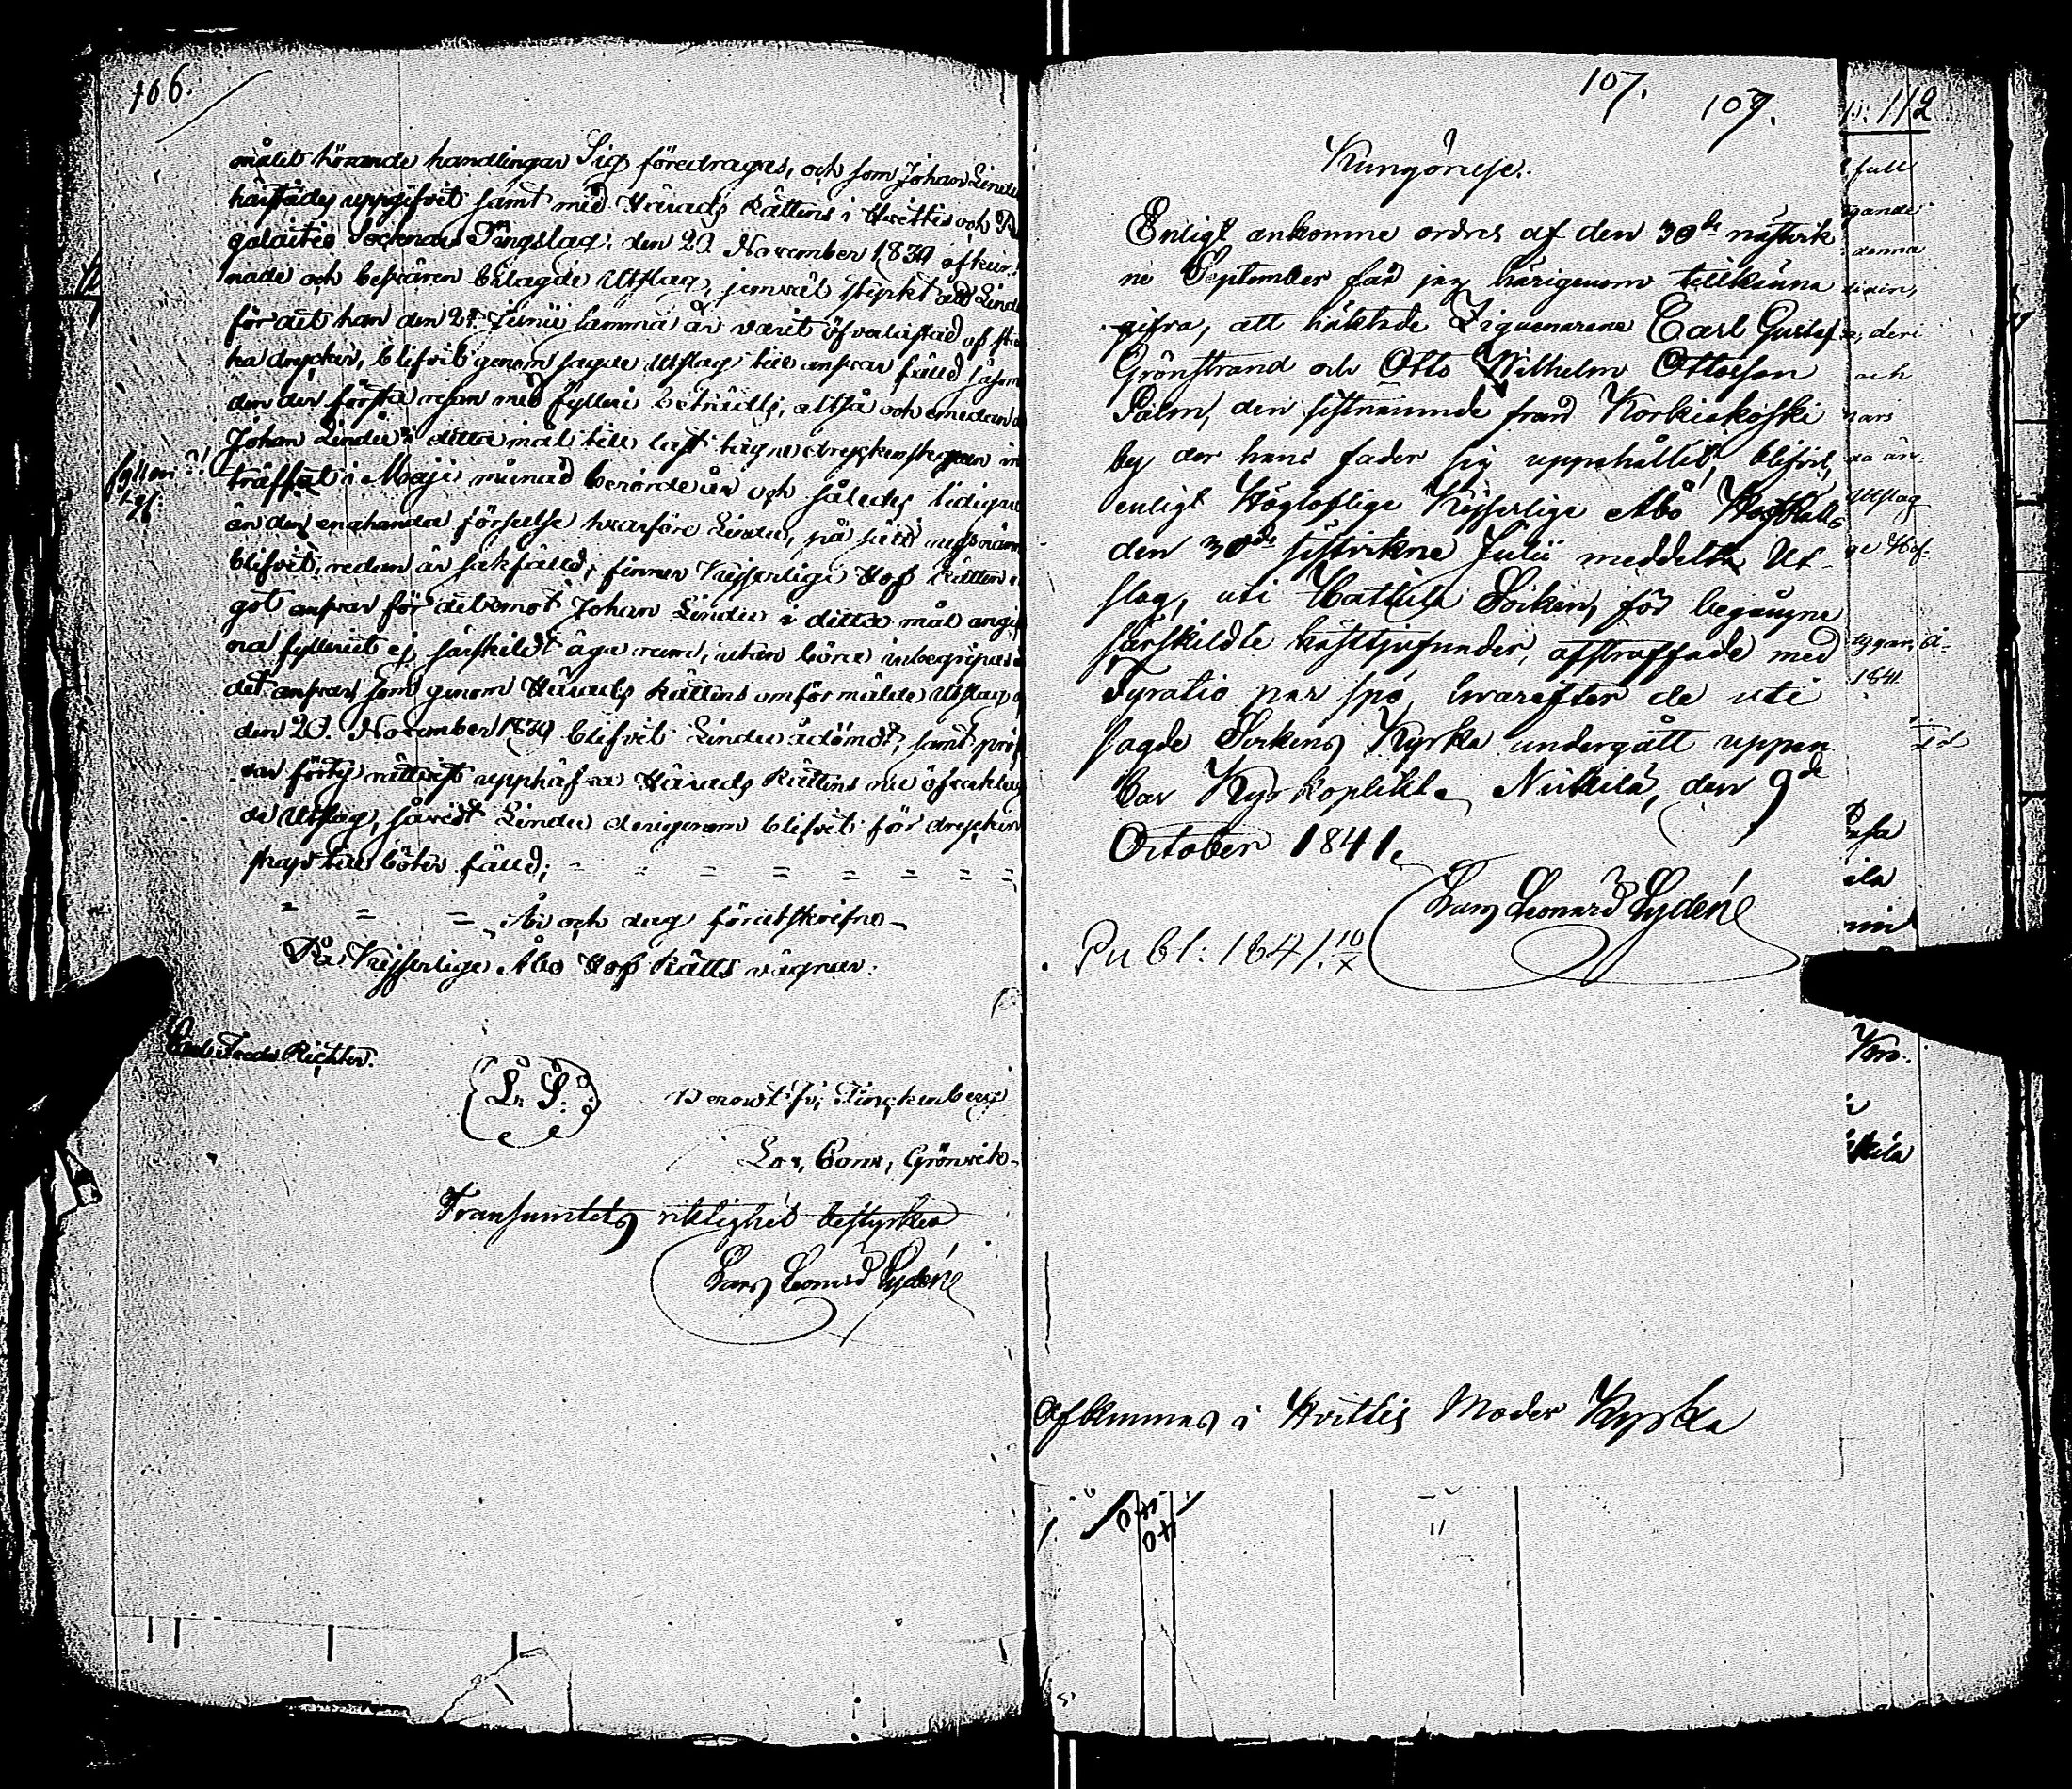 106.
målet hörande handlingar Sig föredragas, och som Johan Linde
härstädes uppgifvet samt med Härads Rättens i Hvittis och
Socknars Tingslag, den 20. November 1839 afkun-
nade och besvären bilagde Utslag, jemväl styrkt att Linde
för det han den 27. Junii samma år varit öfverlastad af star
ka drycker, blifvit genom sagde Utslag till ansvar fälld såsom
den der första resan med fylleri beträdts, altså och emedan
Johan Linde i detta mål till last lagne dryckenskapen in
träffat i Maji månad berörde år och således tidigare
än den enahanda förseelse hvarföre Linde, på sätt
blifvit, redan är sakfälld; finner Kejserlige Hof Rätten
got ansvar för det emot Johan Linde i detta mål angif
na fylleriet ej särskildt äga rum, utan böra inbegripas i
det ansvar som genom Härads Rättens omförmälde Utslag
den 20. November 1839 blifvit Linde ådömdt, samt pröf
var förty rättvist upphäfva Härads Rättens nu öfverklag
de Utslag, såvidt Linde derigenom blifvit för drycken
skap till böter fälld; = = = = = = =
= = = År och dag förutskrifne
På Kejserlige Åbo Hof Rätts vägnar:
Richter.
L. S.
Lor. Conr. Grönvik
Transumtets riktighet bestyrker
Lars Leonard Lydén
107.
107.
Kungörelse.
Enligt ankomne ordres af den 30de nästvik
ne September får jag härigenom tillkänna
gifva, att häktade Ziguenarene Carl Gustaf
Grönstrand och Otto Wilhelm Ottosson
Palm, den sistnämnde från Korkiakoski
by der hans fader sig uppehållit, blifvit,
enligt Högloflige Kejserlige Åbo HofRätts
den 30de sistvikne Julii meddelta Ut-
slag, uti Hattula Socken, för begångne
särskildte häst tjufnader, afstraffade med
par spö, hvarefter de uti
sagde Sockens Kyrka undergått uppen
bar Kyrkoplikt. Nikkilä, den 9de
October 1841.
Lars Leonard Lydén
Publ: 1841. 10/X
Afkunnas i Hvittis Moder Kyrka
112
full
denna
deri
och
Utslag
1841.